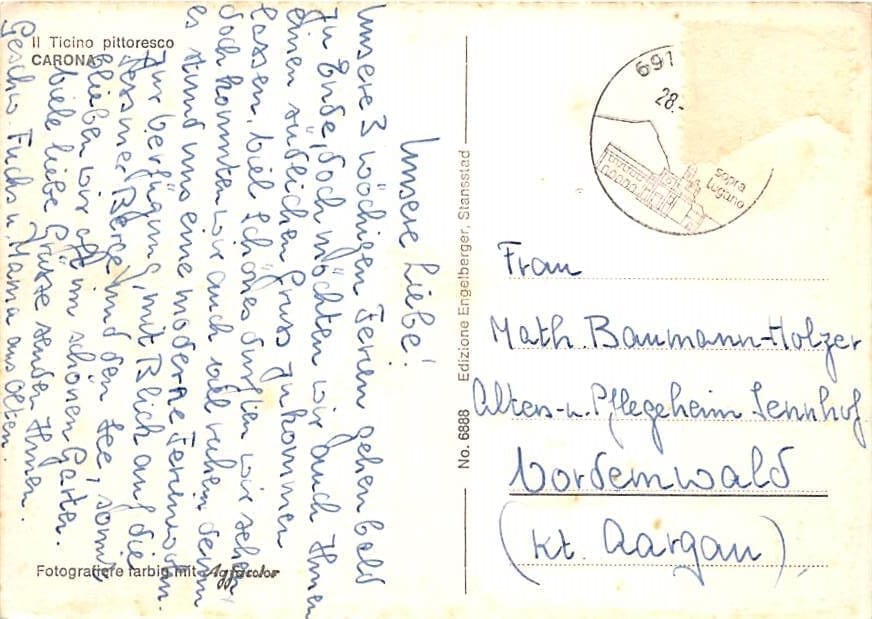 Il Ticino pittoresco
CARONA
Unsere Liebe!
Unsere 3 wöchigen Ferien gehen bald
zu Ende, doch möchten wir auch Ihnen
einen südlichen Gruss zukommen
lassen. Viel Schönes durften wir sehen
doch konnten wir auch viel ruhen denn
es stund uns eine moderne Ferienwohn.
zur Verfügung, mit Blick auf die
Tessiner Berge und den See, somit
blieben wir oft im schönen Garten.
Viele liebe Grüsse senden Ihnen
Geschw. Fuchs u. Mama aus Olten.
Fotografiere farbig mit Agfacolor
No. 6888 Edizione Engelberger, Stansstad
691
28.-
sopra
Lugano
Frau
Math. Baumann-Holzer
Alters-u. Pflegeheim Sennhof
Vordemwald
(Kt. Aargau)